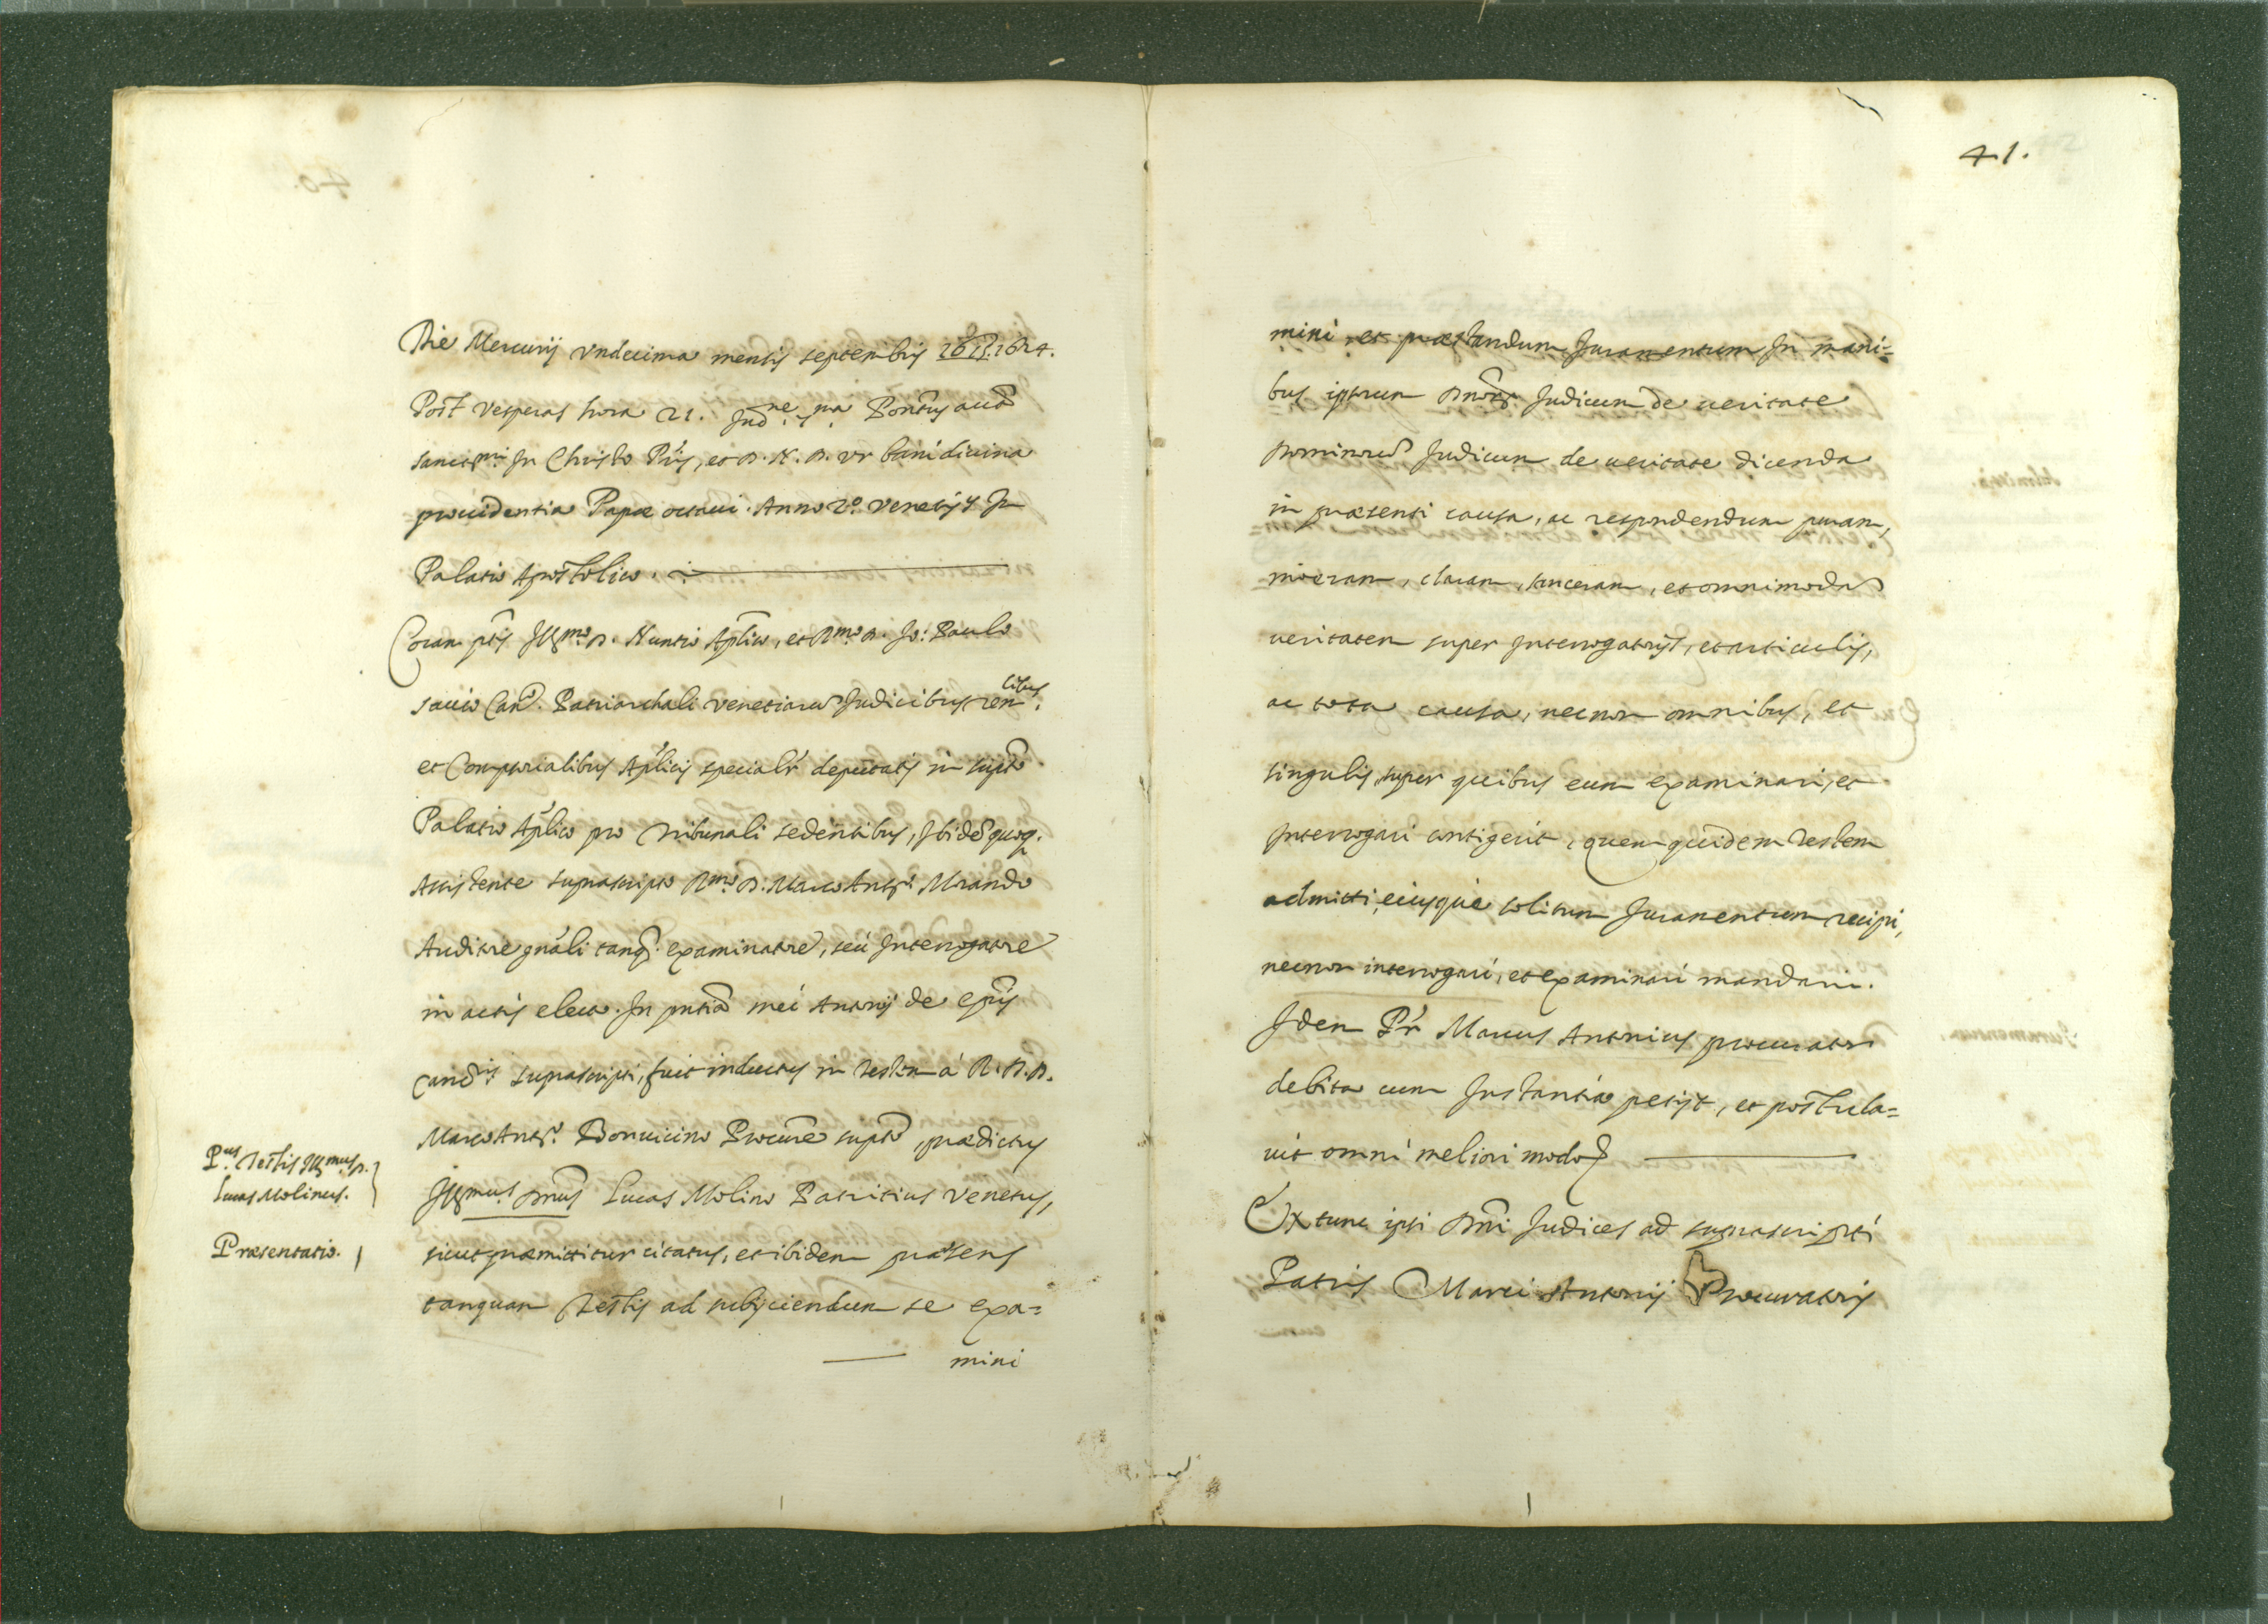 Die Mercurij vndecima mensis septembris 1624.
Post Vesperas hora 21. Ind.ne 7.ma Pontus aut
sanctmi In Christo Pris, et D. N. D. Vrbani diuina
prouidentia Papæ octaui. Anno 2o. Venetijs In
Palatio Apostolico.
Coram ptis Illmo D. Nuntio Aplico, et Rmo D. Jo: Paulo
sauio Can. Patriarchali Venetiarum Judicibus
et Compulsorialibus Aplicis specialr deputatis in supto
Palatio Aplico pro Tribunali sedentibus, Ibide quoq.
Assistente suprascripto Rmo D. Marco Anto Morando
Auditore gnali tanq. examinatore, seù Interrogatore
in actis electo. In pntia mei Antonij de
Canris suprascripti, fuit inductus in testem à R. D. D.
Marco Anto. Bonuicino Procure supto, prædictus
Illmus Dnus Lucas Molino Patritius Venetus,
sicut præmittitur citatus, et ibidem præsens
tanquam testis ad subijciendum se exa=
mini
Pus Testis Illmus D.
Lucas Molinus.
Præsentatio.
41.
mini, et præstandum Juramentum In mani=
bus ipsorum Dnor Judicum de ueritate
Dominorum Judicum de ueritate dicenda
in præsenti causa, ac respondendum puram,
meram, claram, sinceram, et omnimodam
ueritatem super Interrogatorijs, et articulis,
ac tota causa, necnon omnibus, et
singulis, super quibus eum examinari, et
Interrogari contigerit, quem quidem testem
admitti, eiusque solitum Juramentum recipi,
necnon interrogari, et examinari mandari.
Idem Pr Marcus Antonius procurator
debita cum Instantia petijt, et postula=
uit omni meliori modo
Ex tunc ipsi Dni Judices ad suprascripti
Patris Marci Antonij Procuratoris